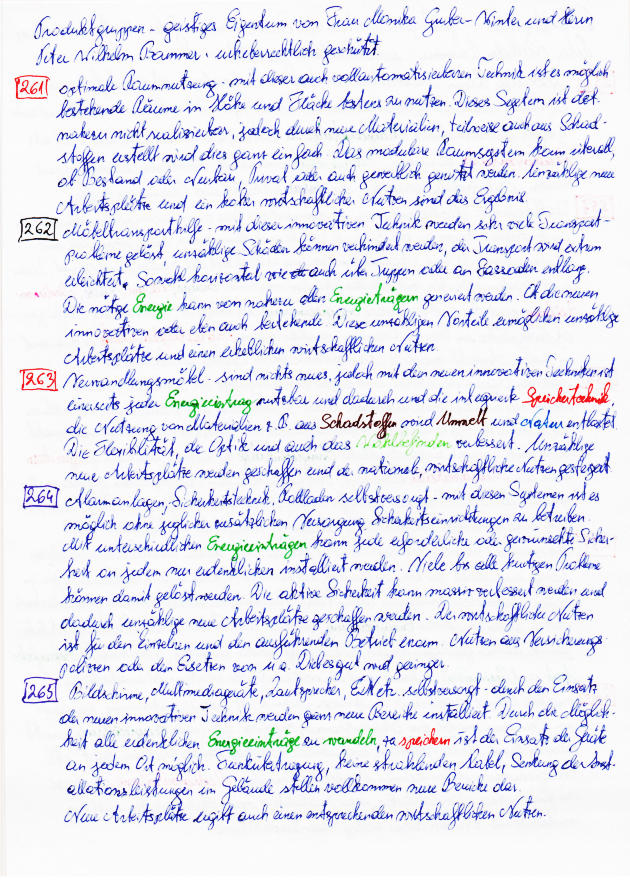 Produktgruppen - geistiges Eigentum von Frau Monika Gruber-Winter und Herrn
Peter Wilhelm Brammer. urheberrechtlich geschützt.
261 optimale Raumnutzung - mit dieser auch vollautomatisierbaren Technik ist es möglich
bestehende Räume in Höhe und Fläche bestens zu nutzen. Dieses System ist det.
nahezu nicht realisierbar, jedoch durch neue Materialien, teilweise auch aus Schad-
stoffen erstellt wird dies ganz einfach. Das modulare Raumsystem kann überall,
ob Bestand oder Neubau. Privat oder auch gewerblich genutzt werden. Unzählige neue
Arbeitsplätze und ein hoher wirtschaftlicher Nutzen sind das Ergebnis.
262 Möbeltransporthilfe - mit dieser innovativen Technik werden sehr viele Transport-
probleme gelöst, unzählige Schäden können verhindert werden, der Transport wird extrem
erleichtert. Sowohl horizontal wie auch über Treppen oder an Fassaden entlang.
Die nötige Energie kann von nahezu allen Energieträgern generiert werden. Ob die neuen
innovativen oder eben auch bestehende. Diese unzähligen Vorteile ermöglichen unzählige
Arbeitsplätze und einen erheblichen wirtschaftlichen Nutzen.
263 Verwandlungsmöbel - sind nichts neues, jedoch mit den neuen innovativen Techniken ist
einerseits jeder Energieeintrag nutzbar und dadurch und die integrierte Speichertechnik
die Nutzung von Materialien z.B. aus Schadstoffen wird Umwelt und Natur entlastet.
Die Flexibilität, die Optik und auch das Wohlbefinden verbessert. Unzählige
neue Arbeitsplätze werden geschaffen und der nationale, wirtschaftliche Nutzen gesteigert.
264 Alarmanlagen, Sicherheitstechnik, Rollladen selbstversorgt - mit diesen Systemen ist es
möglich ohne jeglicher zusätzlichen Versorgung Sicherheitseinrichtungen zu betreiben.
Mit unterschiedlichen Energieeinträgen kann jede erforderliche oder gewünschte Sicher-
heit an jedem nur erdenklichen installiert werden. Viele bis alle heutigen Probleme
können damit gelöst werden. Die aktive Sicherheit kann massiv verbessert werden und
dadurch unzählige neue Arbeitsplätze geschaffen werden. Der wirtschaftliche Nutzen
ist für den Einzelnen und den ausführenden Betrieb enorm. Nutzen aus Versicherungs-
polizzen oder den Einsetzen von u.a. Diebesgut wird geringer.
265 Bildschirme, Multimediageräte, Lautsprecher, E... etc. selbstversorgt - durch den Einsatz
der neuen innovativen Technik werden ganz neue Bereiche installiert. Durch die Möglich-
keit alle erdenklichen Energieeinträge zu wandeln, zu speichern ist der Einsatz der Geräte
an jedem Ort möglich. Funkübertragung, keine strahlenden Kabel, Senkung der Inst-
allationsleistungen im Gebäude stellen vollkommen neue Bereiche dar.
Neue Arbeitsplätze ergibt auch einen entsprechenden wirtschaftlichen Nutzen.